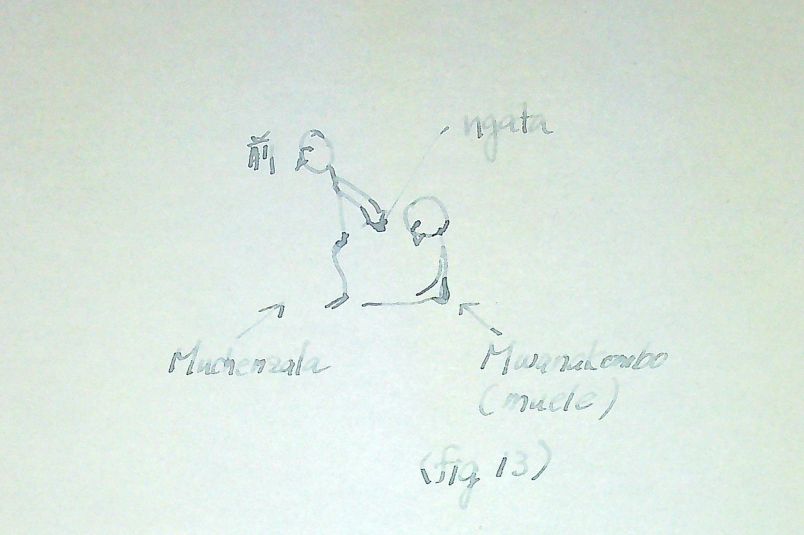 ngata
前
Muchenzala
Mwanakombo
(muele)
(fig 13)